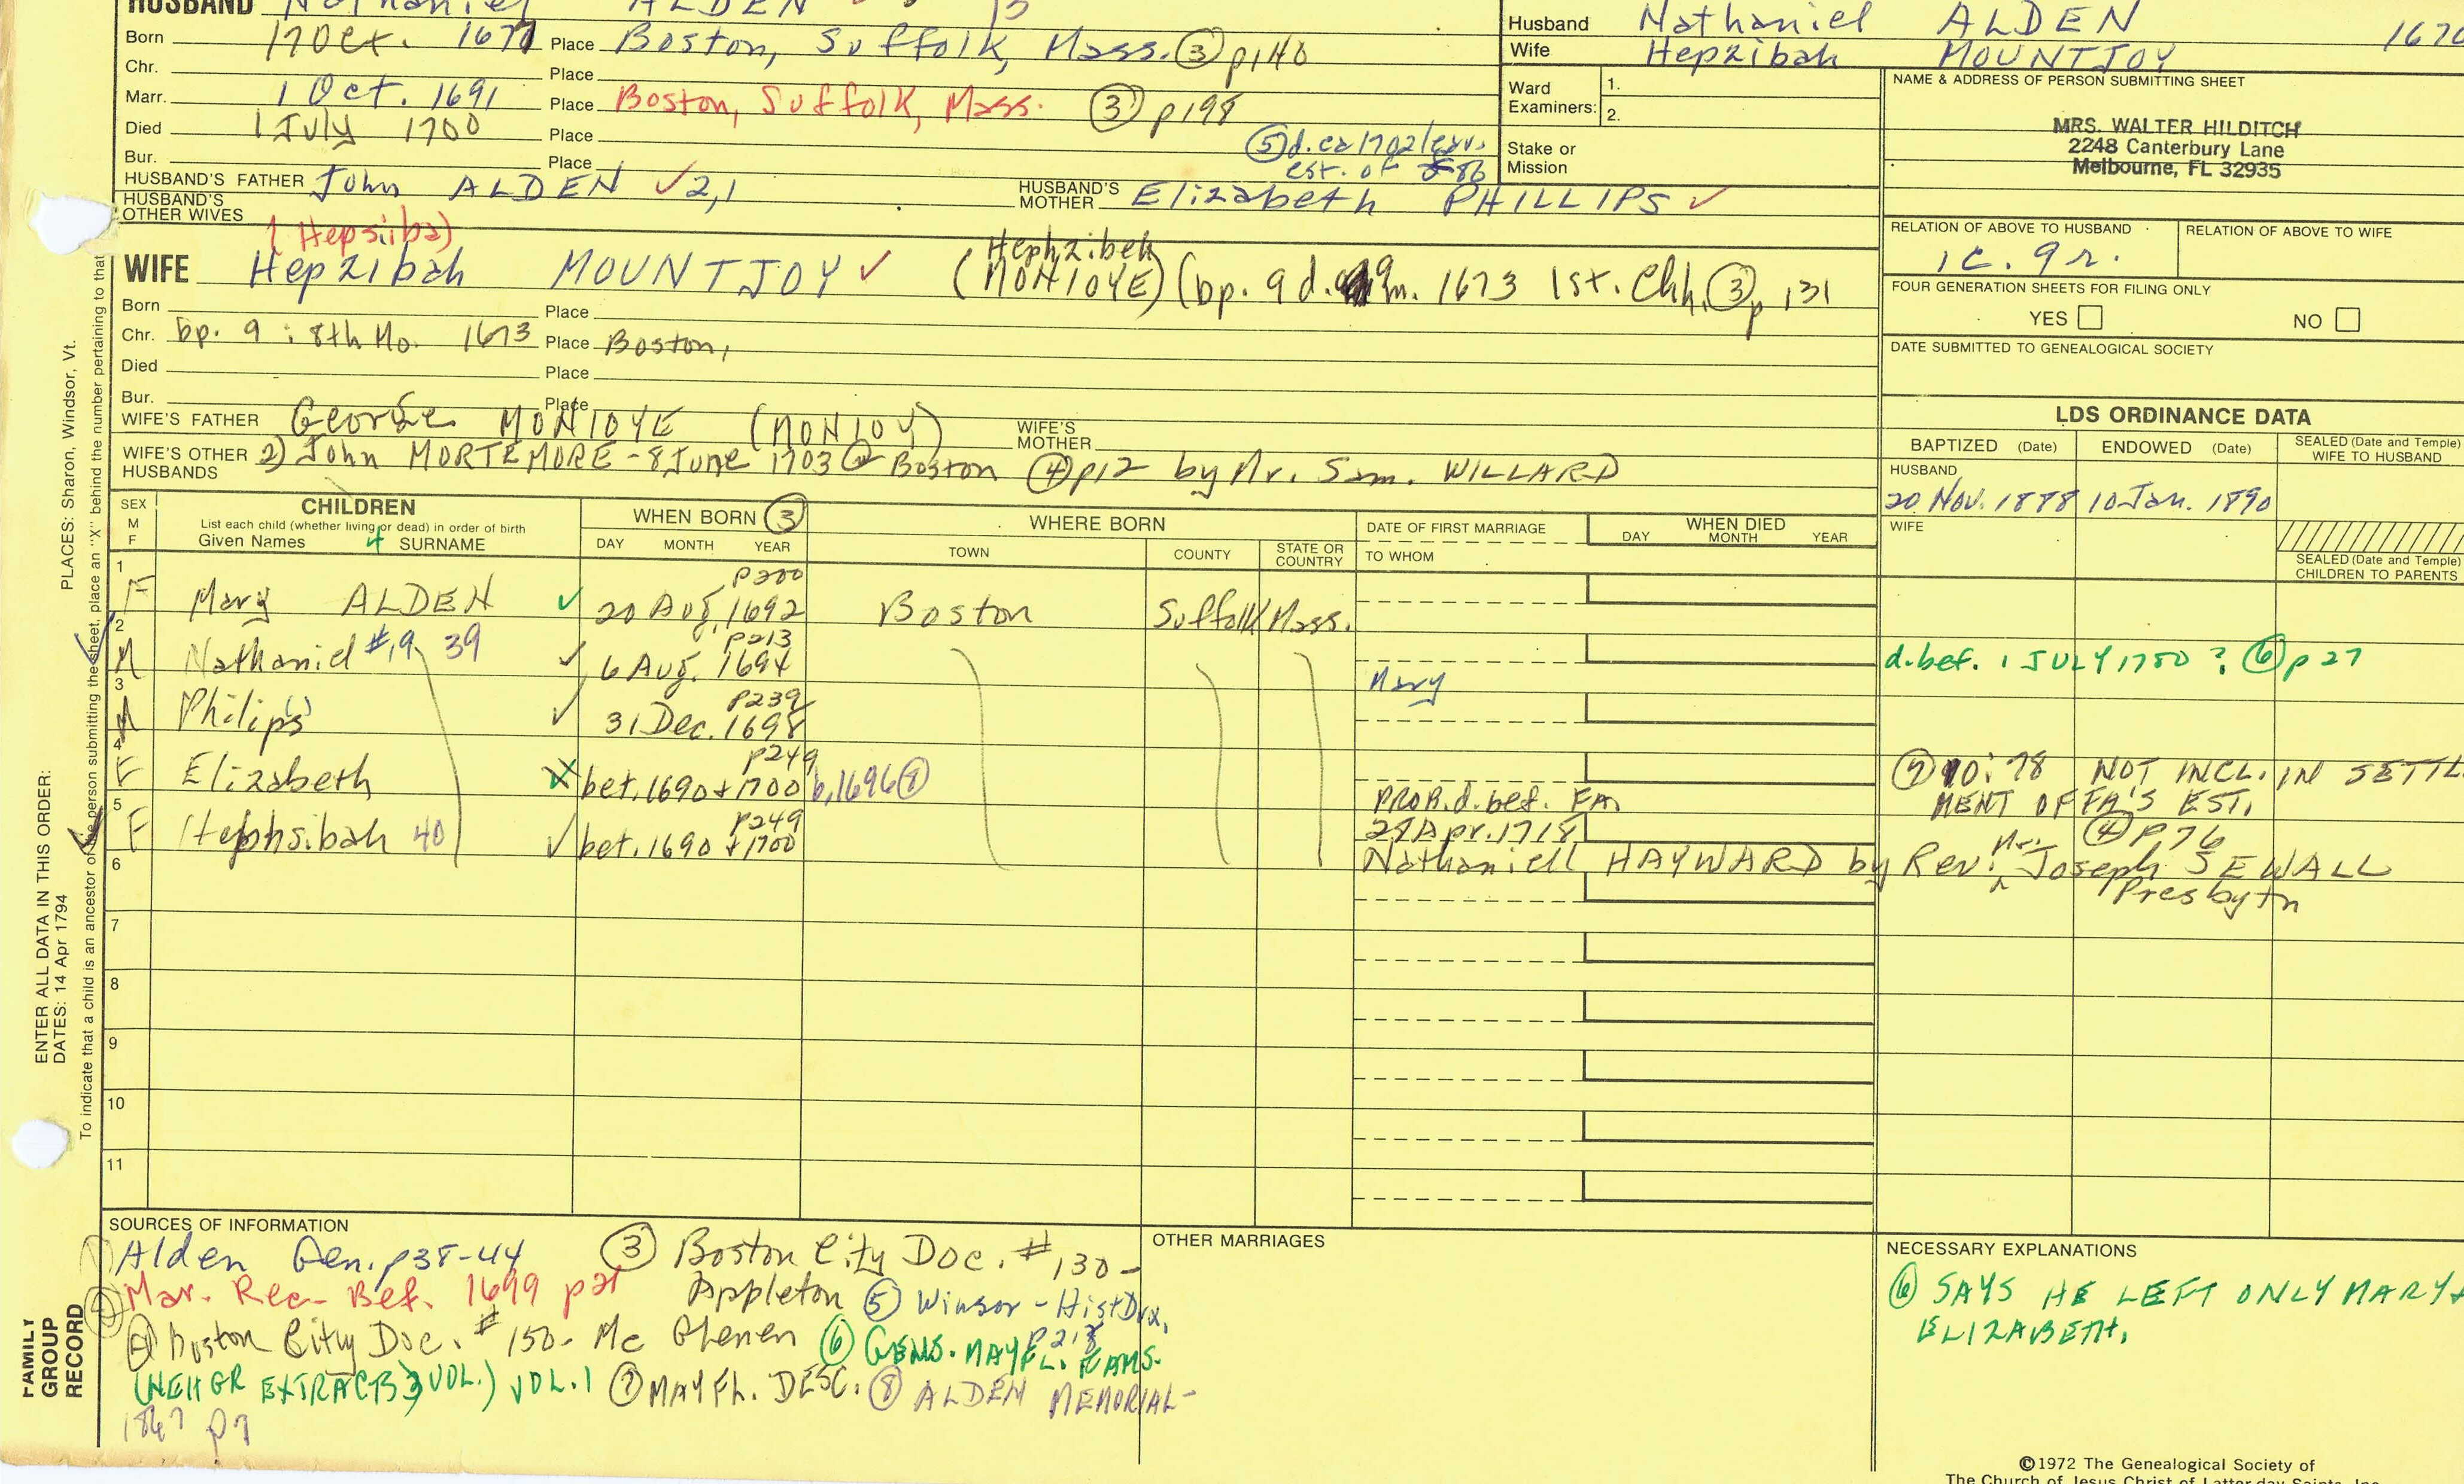 HUSBAND Nathaniel ALDEN
Born 17 Oct. 1670 Place Boston, Suffolk, Mass. ③ p140
Chr. Place
Marr. 1 Oct. 1691 Place Boston, Suffolk, Mass. ③ p198
Died 1 July 1700 Place
⑤ d. ca 1702/
est. of
Bur. Place
HUSBAND'S FATHER John ALDEN ✓ 2,1 HUSBAND'S MOTHER Elizabeth PHILLIPS ✓
HUSBAND'S OTHER WIVES
(Hepsiba)
Hephzibeh
WIFE Hepzibah MOUNTJOY ✓ (MONIOYE) (bp. 9 d. 9 m. 1673 1st. Chh. ③ p 131
Born Place
Chr. bp. 9 : 8th Mo. 1673 Place Boston,
Died Place
Bur. Place
WIFE'S FATHER George MONIOYE (MONIOY) WIFE'S MOTHER
WIFE'S OTHER HUSBANDS 2) John MORTEMORE - 8 June 1703 @ Boston ④ p12 by Mr. Sam. WILLARD
Husband Nathaniel ALDEN 1670
Wife Hepzibah MOUNTJOY
Ward Examiners: 1.
2.
Stake or Mission
NAME & ADDRESS OF PERSON SUBMITTING SHEET
MRS. WALTER HILDITCH
2248 Canterbury Lane
Melbourne, FL 32935
RELATION OF ABOVE TO HUSBAND RELATION OF ABOVE TO WIFE
1c. 9r.
FOUR GENERATION SHEETS FOR FILING ONLY
YES NO
DATE SUBMITTED TO GENEALOGICAL SOCIETY
LDS ORDINANCE DATA
BAPTIZED (Date) ENDOWED (Date) SEALED (Date and Temple) WIFE TO HUSBAND
HUSBAND
20 Nov. 1888 10 Jan. 1890
WIFE
SEALED (Date and Temple)
CHILDREN TO PARENTS
SEX M F
CHILDREN
List each child (whether living or dead) in order of birth
Given Names SURNAME
4
WHEN BORN ③
DAY MONTH YEAR
WHERE BORN
TOWN COUNTY STATE OR COUNTRY
DATE OF FIRST MARRIAGE
TO WHOM
WHEN DIED
DAY MONTH YEAR
p200
1 F Mary ALDEN ✓ 20 Aug. 1692 Boston Suffolk Mass.
p213
2 M Nathaniel #,9 39 ✓ 6 Aug. 1694 Mary d. bef. 1 JULY 1750 ? ⑥ p27
p239
3 M Philip(s) ✓ 31 Dec. 1698
p249
4 F Elizabeth bet. 1690 + 1700 b, 1696 ⑧ PROB. d. bef. FA. ⑦ 10:78 NOT INCL. IN SETTL
MENT OF FA'S EST.
p249
5 F Hephsibah 40 ✓ bet. 1690 + 1700 28 Apr. 1718 ④ p. 76
Nathaniell HAYWARD by Rev. Mr. Joseph SEWALL
Presbytn
6
7
8
9
10
11
SOURCES OF INFORMATION
Alden Gen. p38-44 ③ Boston City Doc. # 130 -
Appleton
Mar. Rec- Bef. 1699 p21 ⑤ Winsor - Hist Dux,
④ Boston City Doc. # 150- Mc ⑥ GENS. MAYFL. FAMS.
(NEHGR EXTRACTS 3 VOL.) VOL. 1 ⑦ MAYFL. DESC. ⑧ ALDEN MEMORIAL -
1867 p7
OTHER MARRIAGES
NECESSARY EXPLANATIONS
⑥ SAYS HE LEFT ONLY MARY +
ELIZABETH.
©1972 The Genealogical Society of
The Church of Jesus Christ of Latter-day Saints, Inc.
ENTER ALL DATA IN THIS ORDER: PLACES: Sharon, Windsor, Vt.
DATES: 14 Apr 1794
To indicate that a child is an ancestor of the person submitting the sheet, place an "X" behind the number pertaining to that
FAMILY GROUP RECORD